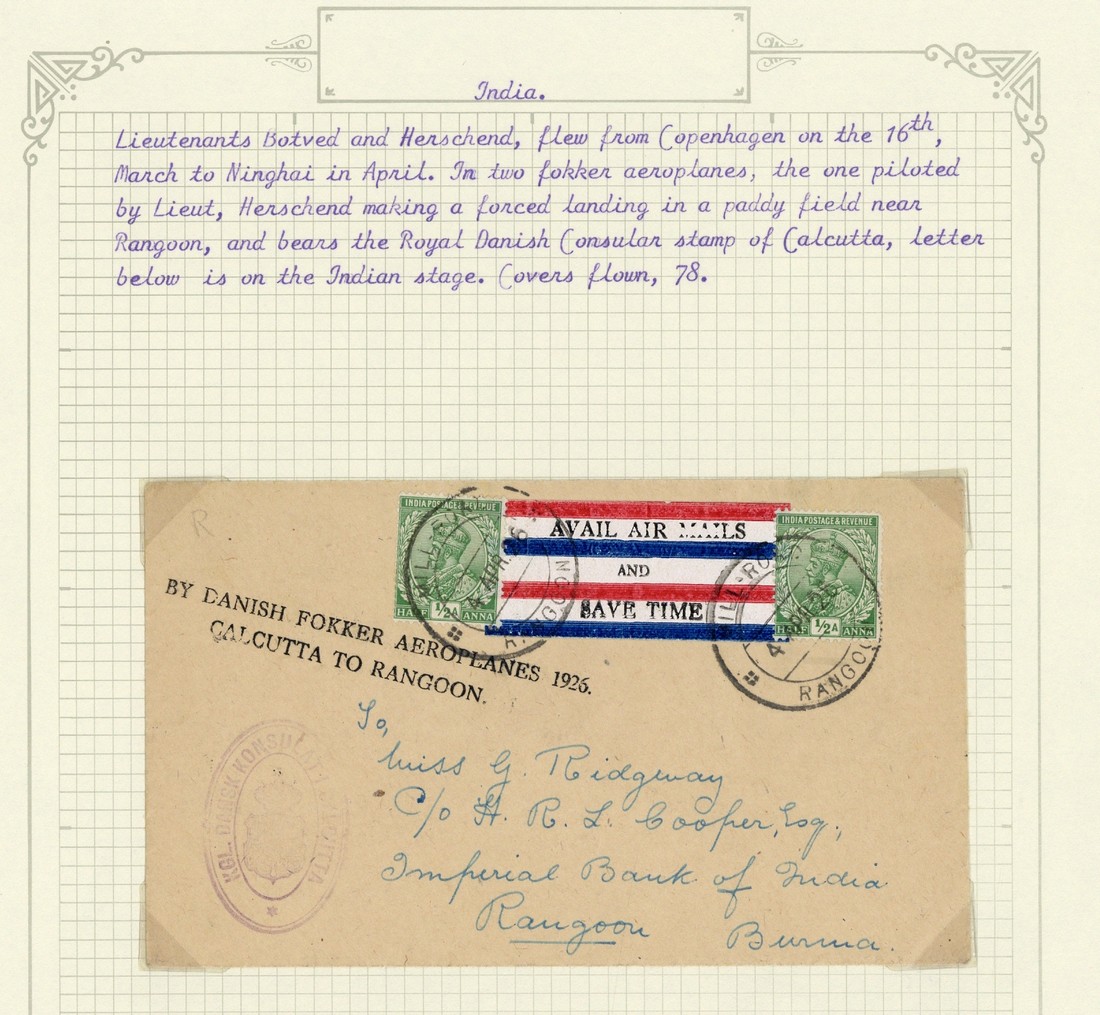 India.
Lieutenants Botved and Herschend, flew from Copenhagen on the 16th,
March to Ninghai in April. In two fokker aeroplanes, the one piloted
by Lieut, Herschend making a forced landing in a paddy field near
Rangoon, and bears the Royal Danish Consular stamp of Calcutta, letter
below is on the Indian stage. Covers flown, 78.
R
INDIA POSTAGE & REVENUE
HALF 1/2A ANNA
RANGOON
AVAIL AIR MAILS
AND
SAVE TIME
INDIA POSTAGE & REVENUE
HALF 1/2A ANNA
RANGOO
BY DANISH FOKKER AEROPLANES 1926.
CALCUTTA TO RANGOON.
KGL. DANSK KONSULAT
To,
Miss G. Ridgeway
C/o H. R. L. Cooper, Esq.,
Imperial Bank of India
Rangoon Burma.